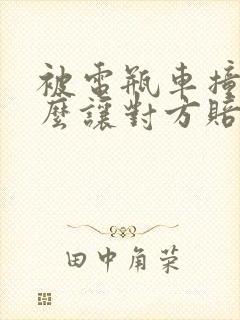 被電瓶車撞
麼讓對方賠
田中角荣